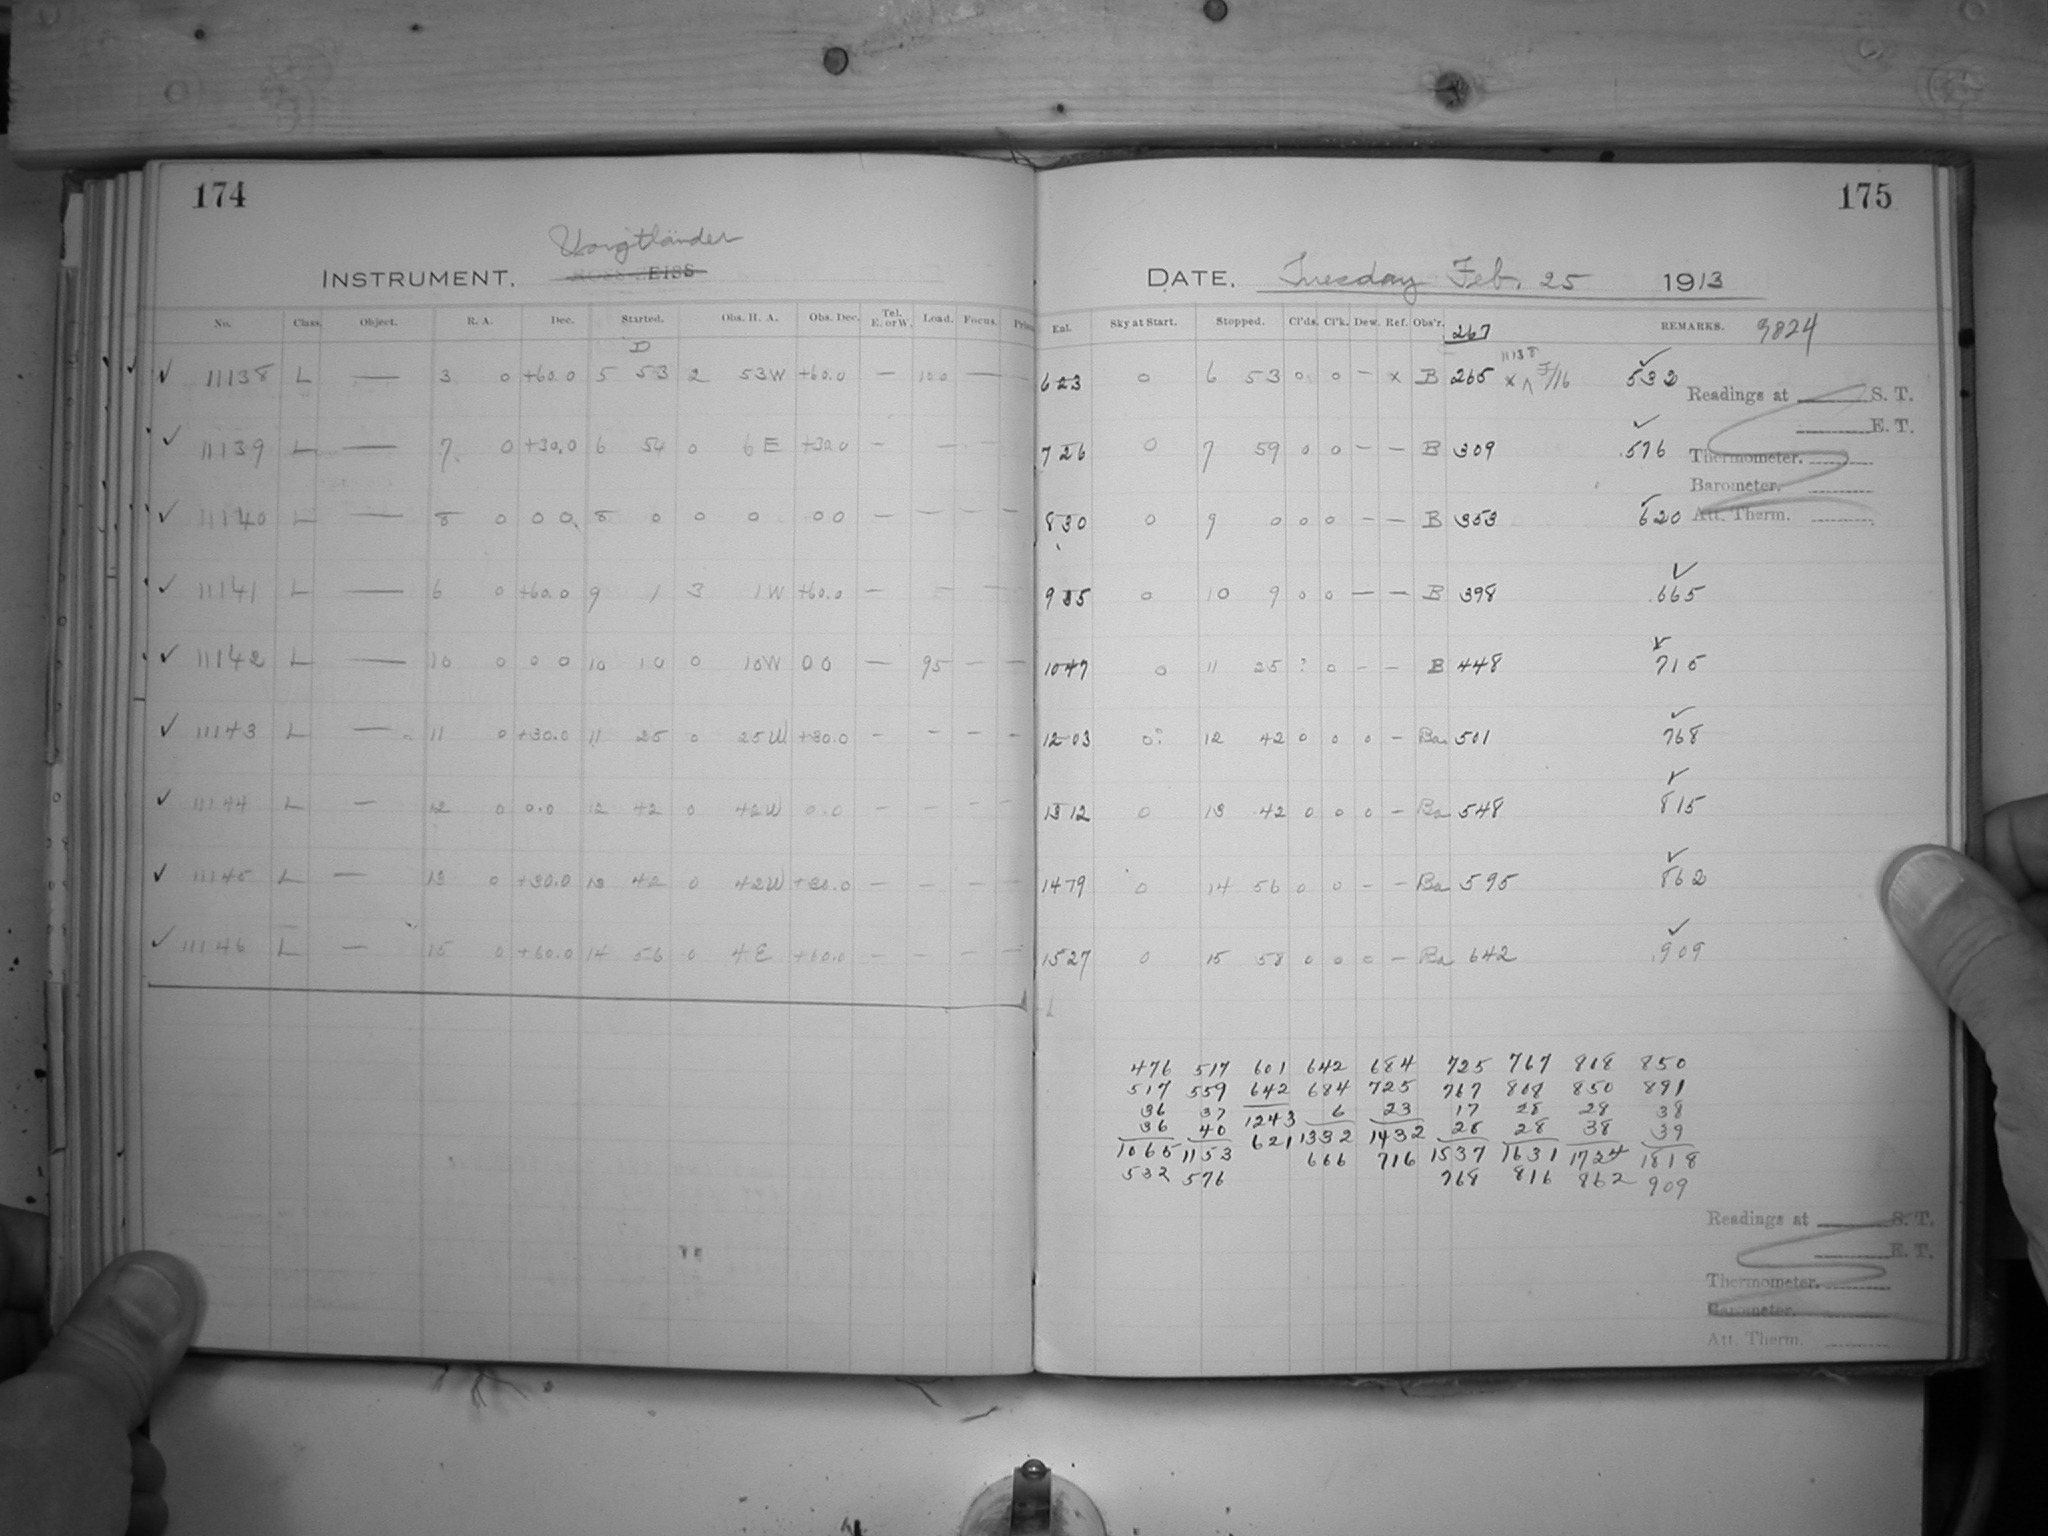 174
Voigtländer
INSTRUMENT. ROSS-ZEISS
No. Class. Object. R. A. Dec. Started. Obs. H. A. Obs. Dec. Tel. E. or W. Load. Focus.
D
✓ 11138 L — 3 0 +60.0 5 53 2 53W +60.0 — 100 —
✓ 11139 L — 7 0 +30.0 6 54 0 6E +30.0 — — —
✓ 11140 L — 8 0 0 0 8 0 0 0 00 — — — —
✓ 11141 L — 6 0 +60.0 9 1 3 1W +60.0 — — —
✓ 11142 L — 10 0 0 0 10 10 0 10W 00 — 95 — —
✓ 11143 L — 11 0 +30.0 11 25 0 25W +30.0 — — — —
✓ 11144 L — 12 0 0.0 12 42 0 42W 0.0 — — — —
✓ 11145 L — 13 0 +30.0 13 42 0 42W +30.0 — — — —
✓ 11146 L — 15 0 +60.0 14 56 0 4E +60.0 — — — —
175
DATE. Tuesday Feb. 25 1913
Exl. Sky at Start. Stopped. Cl'ds. Cl'k. Dew. Ref. Obs'r. 267 REMARKS. 9824
623 0 6 53 0 0 — x B 265 x 11138 ^ F/16 532
726 0 7 59 0 0 — — B 309 .576
830 0 9 0 0 0 — — B 353 620
935 0 10 9 0 0 — — B 398 .665
1047 0 11 25 ? 0 — — B 448 715
1203 0? 12 42 0 0 0 — Ba 501 768
1312 0 13 42 0 0 0 — Ba 548 815
1419 0 14 56 0 0 — — Ba 595 862
1527 0 15 58 0 0 0 — Ba 642 .909
Readings at S. T.
E. T.
Thermometer.
Barometer.
Att. Therm.
476 517 601 642 684 725 767 808 850
517 559 642 684 725 767 808 850 891
36 37 1243 6 23 17 28 28 38
36 40 621 1332 1432 28 28 38 39
1065 1153 666 716 1537 1631 1724 1818
532 576 768 816 862 909
Readings at S. T.
E. T.
Thermometer.
Barometer.
Att. Therm.